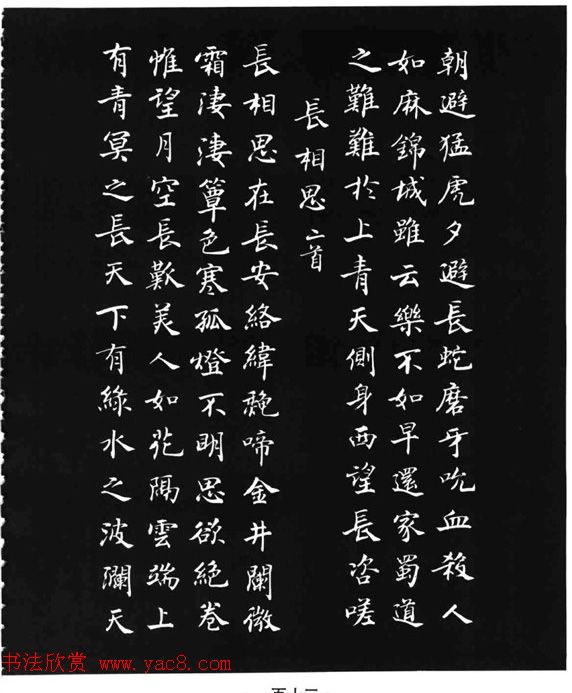 朝避猛虎夕避長蛇磨牙吮血殺人
如麻錦城雖云樂不如早還家蜀道
之難難於上青天側身西望長咨嗟
長相思二首
長相思在長安絡緯秋啼金井闌微
霜淒淒簟色寒孤燈不明思欲絕卷
帷望月空長歎美人如花隔雲端上
有青冥之長天下有綠水之波瀾天
书法欣赏 www.yac8.com